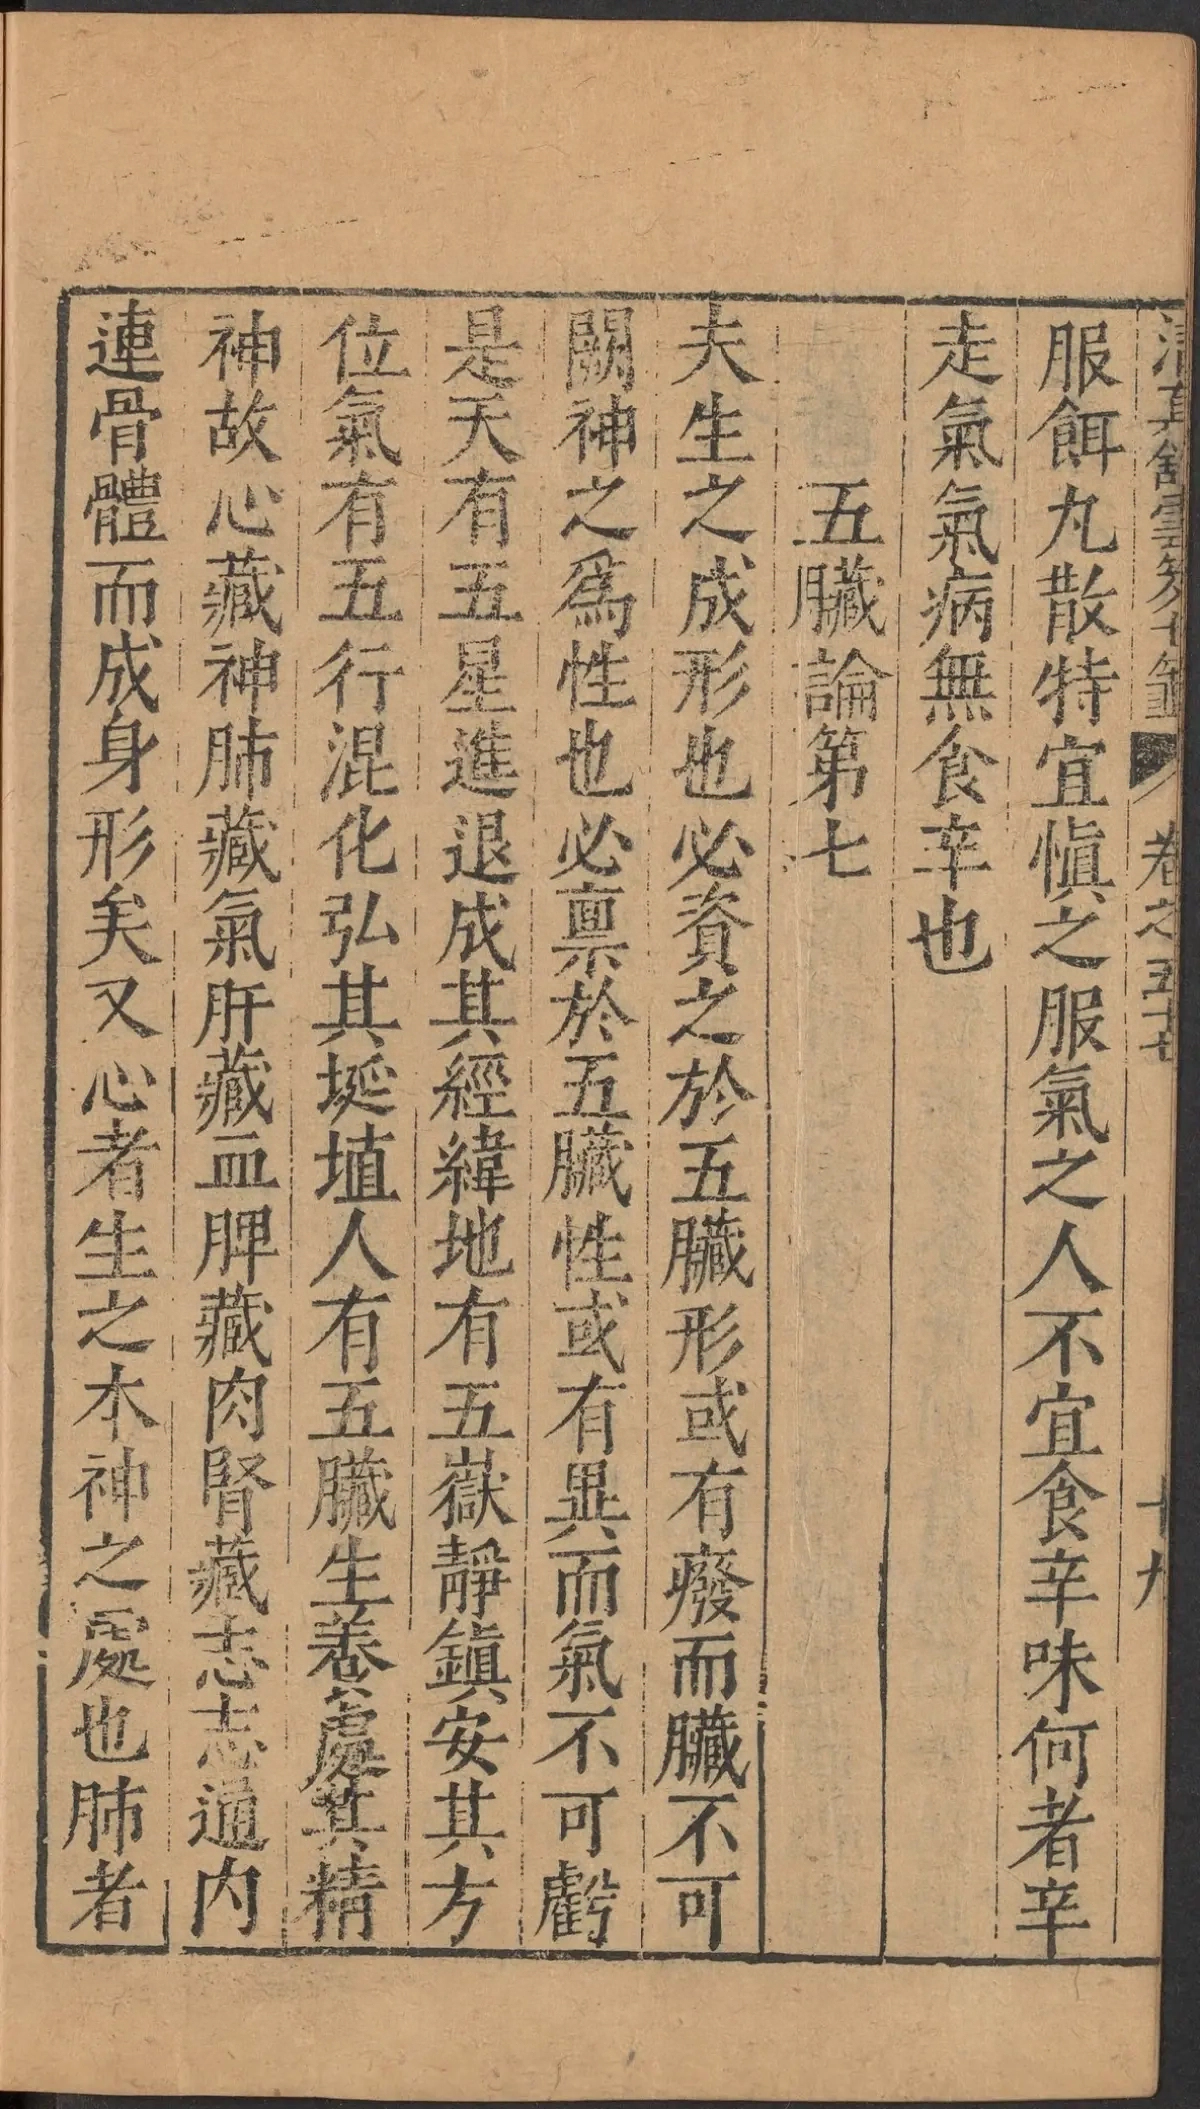 清真館雲笈七籤 卷之五十七 十九
服餌丸散特宜愼之服氣之人不宜食辛味何者辛
走氣氣病無食辛也
五臟論第七
夫生之成形也必資之於五臟形或有癈而臟不可
闕神之爲性也必禀於五臟性或有異而氣不可虧
是天有五星進退成其經緯地有五嶽靜鎮安其方
位氣有五行混化弘其埏埴人有五臟生養處其精
神故心藏神肺藏氣肝藏血脾藏肉腎藏志志通内
連骨體而成身形矣又心者生之本神之處也肺者